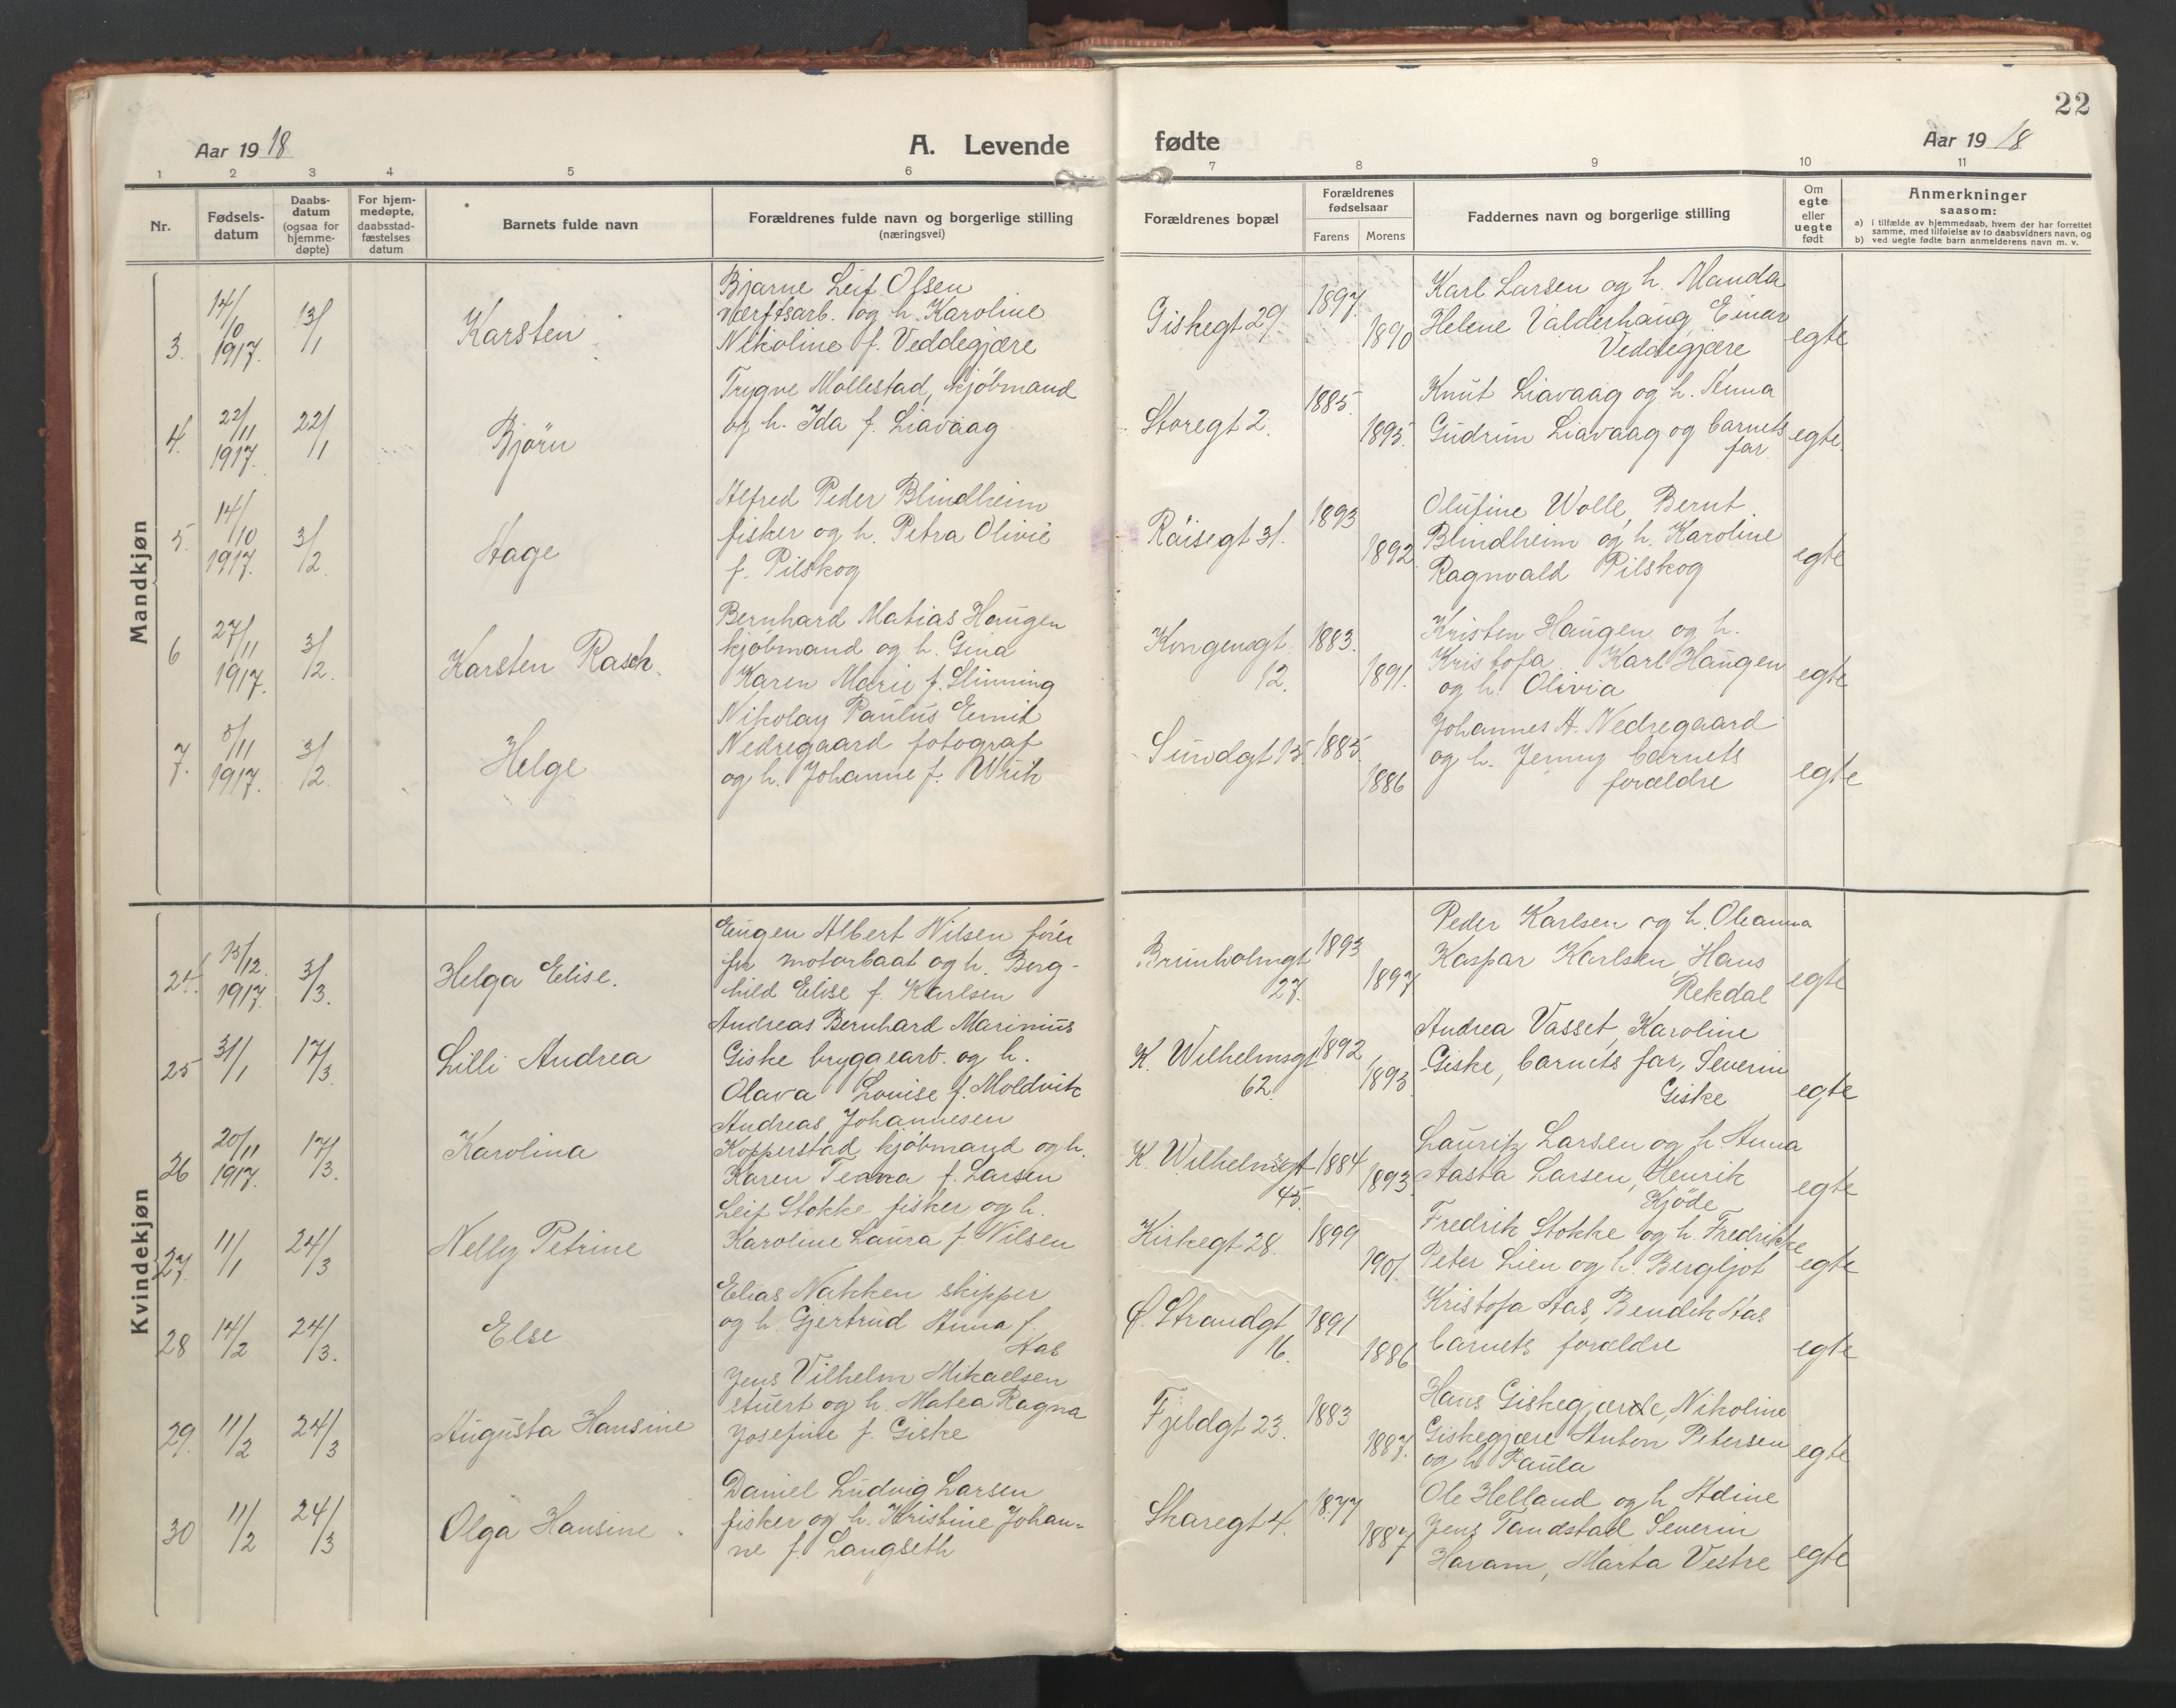 22
Aar 1918
A. Levende
fødte
Aar 1918
1 2 3 4 5 6 7 8 9 10 11
Nr.
Fødsels-
datum
Daabs-
datum
(ogsaa for
hjemme-
døpte)
For hjem-
medøpte,
daabsstad-
fæstelses
datum
Barnets fulde navn
Forældrenes fulde navn og borgerlige stilling
(næringsvei)
Forældrenes bopæl
Forældrenes
fødselsaar
Farens
Morens
Faddernes navn og borgerlige stilling
Om
egte
eller
uegte
født
Anmerkninger
saasom:
a) i tilfælde av hjemmedaab, hvem der har forrettet
samme, med tilføielse av to daabsvidners navn, og
b) ved uegte fødte barn anmelderens navn m. v.
Mandkjøn
3.
14/10
1917.
13/1
Karsten
Bjarne Leif Olsen
værftsarb. og h. Karoline
Nikoline f. Veddegjære
Giskegt 29.
1897.
1890
Karl Larsen og h. Manda
Helene Valderhaug, Einar
Veddegjære
egte
4.
22/11
1917.
22/1
Bjørn
Trygve Mollestad, kjøbmand
og h. Ida f. Liavaag
Storegt 2.
1885.
1895.
Knut Liavaag og h. Anna
Gudrun Liavaag og barnets
far
egte.
5.
14/10
1917.
3/2
Aage
Alfred Peder Blindheim
fisker og h. Petra Olivie
f. Pilskog
Röisegt 31.
1893
1892.
Olufine Wolle, Bernt
Blindheim og h. Karoline
Ragnvald Pilskog
egte
6
27/11
1917.
3/2.
Karsten Rasch.
Bernhard Matias Haugen
kjøbmand og h. Gina
Karen Marie f. Slinning
Kongensgt
12.
1883.
1891.
Kristen Haugen og h.
Kristofa. Karl Haugen
og h. Olivia
egte
7.
5/11
1917.
3/2
Helge
Nikolay Paulus Emil
Nedregaard fotograf
og h. Johanne f. Wiik
Sundgt 15.
1885.
1886
Johannes A. Nedregaard
og h. Jenny barnets
forældre
egte
Kvindekjøn
24.
15/12.
1917.
3/3.
Helga Elise.
Eugen Albert Nilsen fører
for motorbaat og h. Borg-
hild Elise f. Karlsen
Brunholmgt
27.
1893
1897
Peder Karlsen og h. Oleanna
Kaspar Karlsen, Hans
Rekdal
egte
25
31/1
17/3.
Lilli Andrea
Andreas Bernhard Marinius
Giske bryggearb. og h.
Olava Lovise f. Moldvik
K. Wilhelmsgt
62.
1892
1893
Andrea Vasset, Karoline
Giske, barnets far, Severin
Giske
egte
26
20/11
1917.
17/3.
Karolina
Andreas Johannesen
Kopperstad kjøbmand og h.
Karen f. Larsen
K. Wilhelmsgt
45.
1884
1893.
Lauritz Larsen og h. Anna
Aasta Larsen, Henrik
Kjöde
egte
27.
11/1
24/3
Nelly Petrine
Leif Stokke fisker og h.
Karoline Laura f. Nilsen
Kirkegt 28.
1899
1901.
Fredrik Stokke og h. Fredrikke
Peter Lien og h. Bergljot
egte
28
14/2
24/3.
Else
Elias Nakken skipper
og h. Gjertrud Anna f.
Aas
Ø. Strandgt
16.
1891
1886
Kristofa Aas, Bendik Aas
barnets forældre
egte
29.
11/2
24/3
Augusta Hansine
Jens Vilhelm Mikaelsen
stuert og h. Matea Ragna
Josefine f. Giske
Fjeldgt 23.
1883
1887.
Hans Giskegjerde, Nikoline
Giskegjære Anton Petersen
og h. Paula
egte
30
11/2
24/3
Olga Hansine.
Daniel Ludvig Larsen
fisker og h. Kristine Johan-
ne f. Langseth
Skaregt 4.
1877
1887
Ole Helland og h. Adine
Jens Tandstad Severin
Haram, Marta Vestre
egte